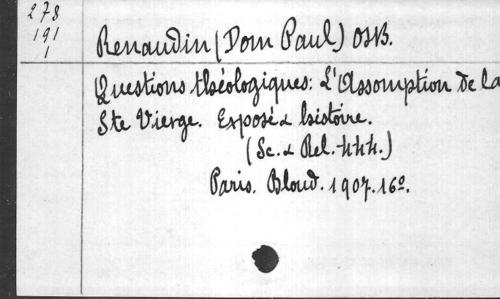 278
191
1
Renaudin (Dom Paul) OSB.
Questions théologiques: L'Assomption de la
Ste Vierge. Exposé & histoire.
(Sc. & Rel. 444.)
Paris. Bloud. 1907. 16º.